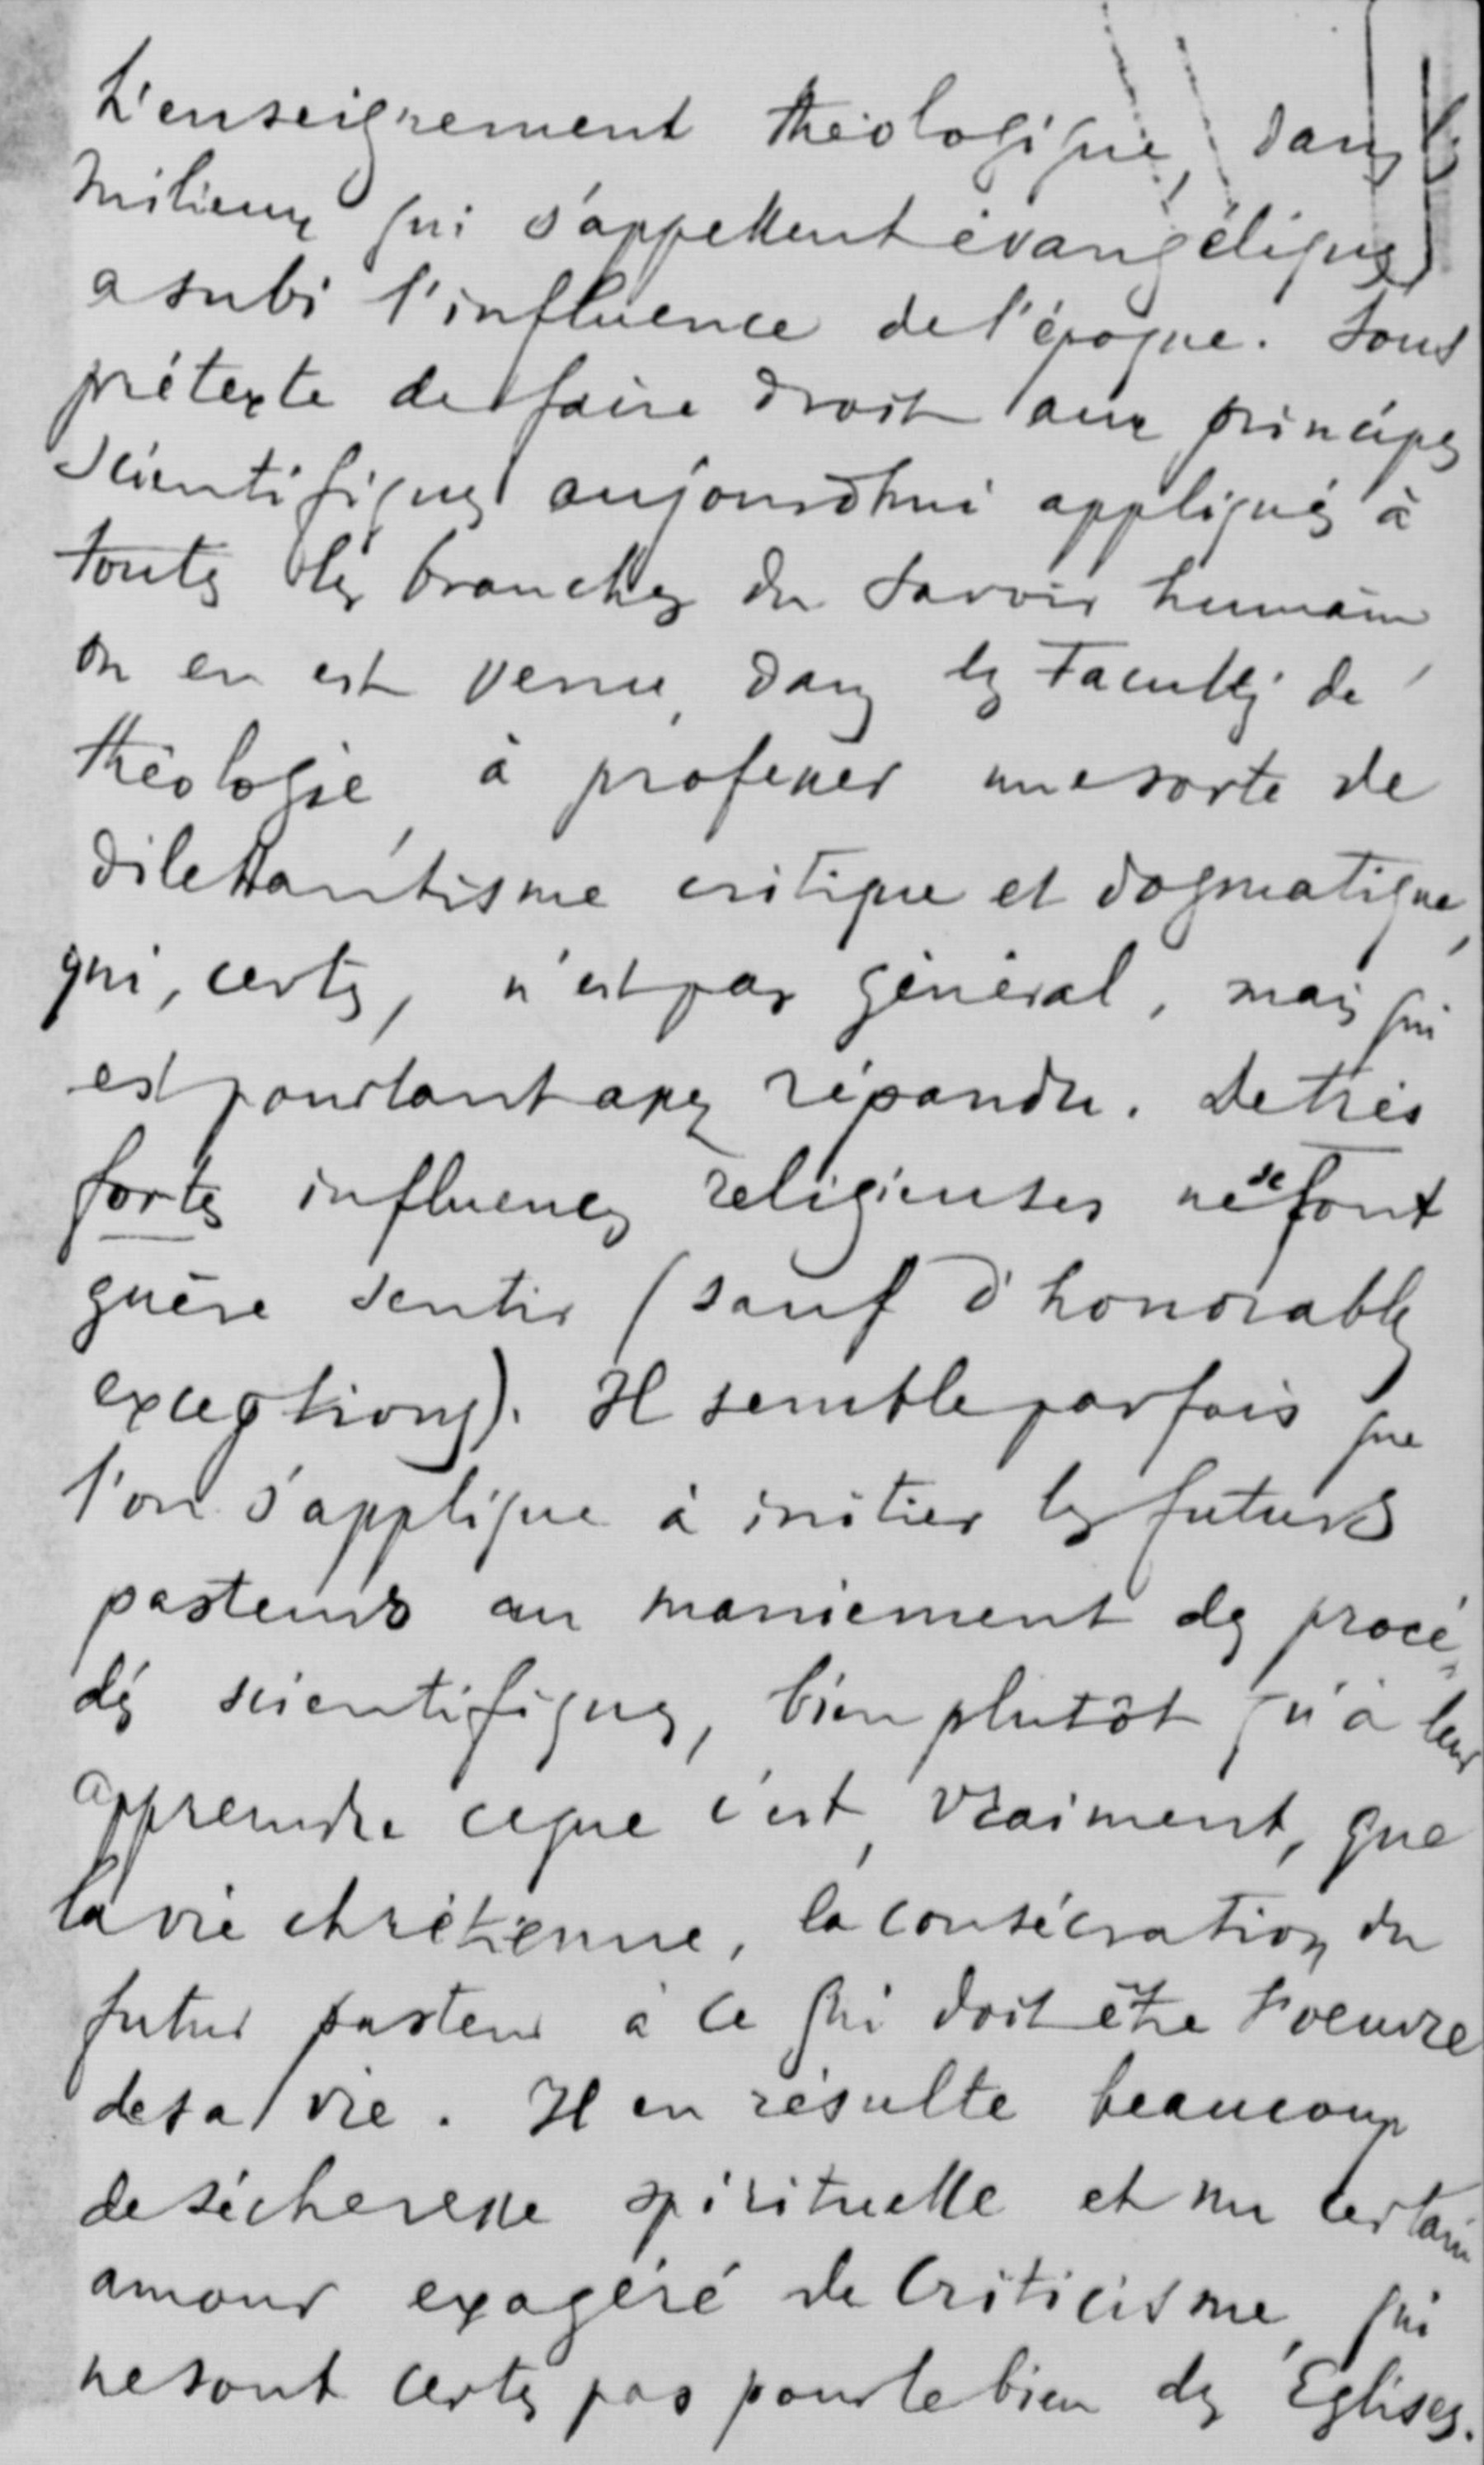 L'enseignement théologique, dans les
milieux qui s'appellent évangéliques
a subi l'influence de l'époque. Sous
prétexte de faire droit aux principes
scientifiques aujourd'hui appliqués à
toutes les branches du savoir humain
on en est venu, dans les Facultés de
théologie, à professer une sorte de
dilettantisme critique et dogmatique,
qui, certes, n'est pas général, mais qui
est pourtant assez répandu. De très
fortes influences religieuses ne se font
guère sentir (sauf d'honorables
exceptions). Il semble parfois que
l'on s'applique à initier les futurs
pasteurs au maniement des procé-
dés scientifiques, bien plutôt qu'à leur
apprendre ce que c'est, vraiment, que
la vie chrétienne, la consécration du
futur pasteur à ce qui doit être l'oeuvre
de sa vie. Il en résulte beaucoup
de sécheresse spirituelle et un certain
amour exagéré de criticisme, qui
ne sont certes pas pour le bien des Eglises.